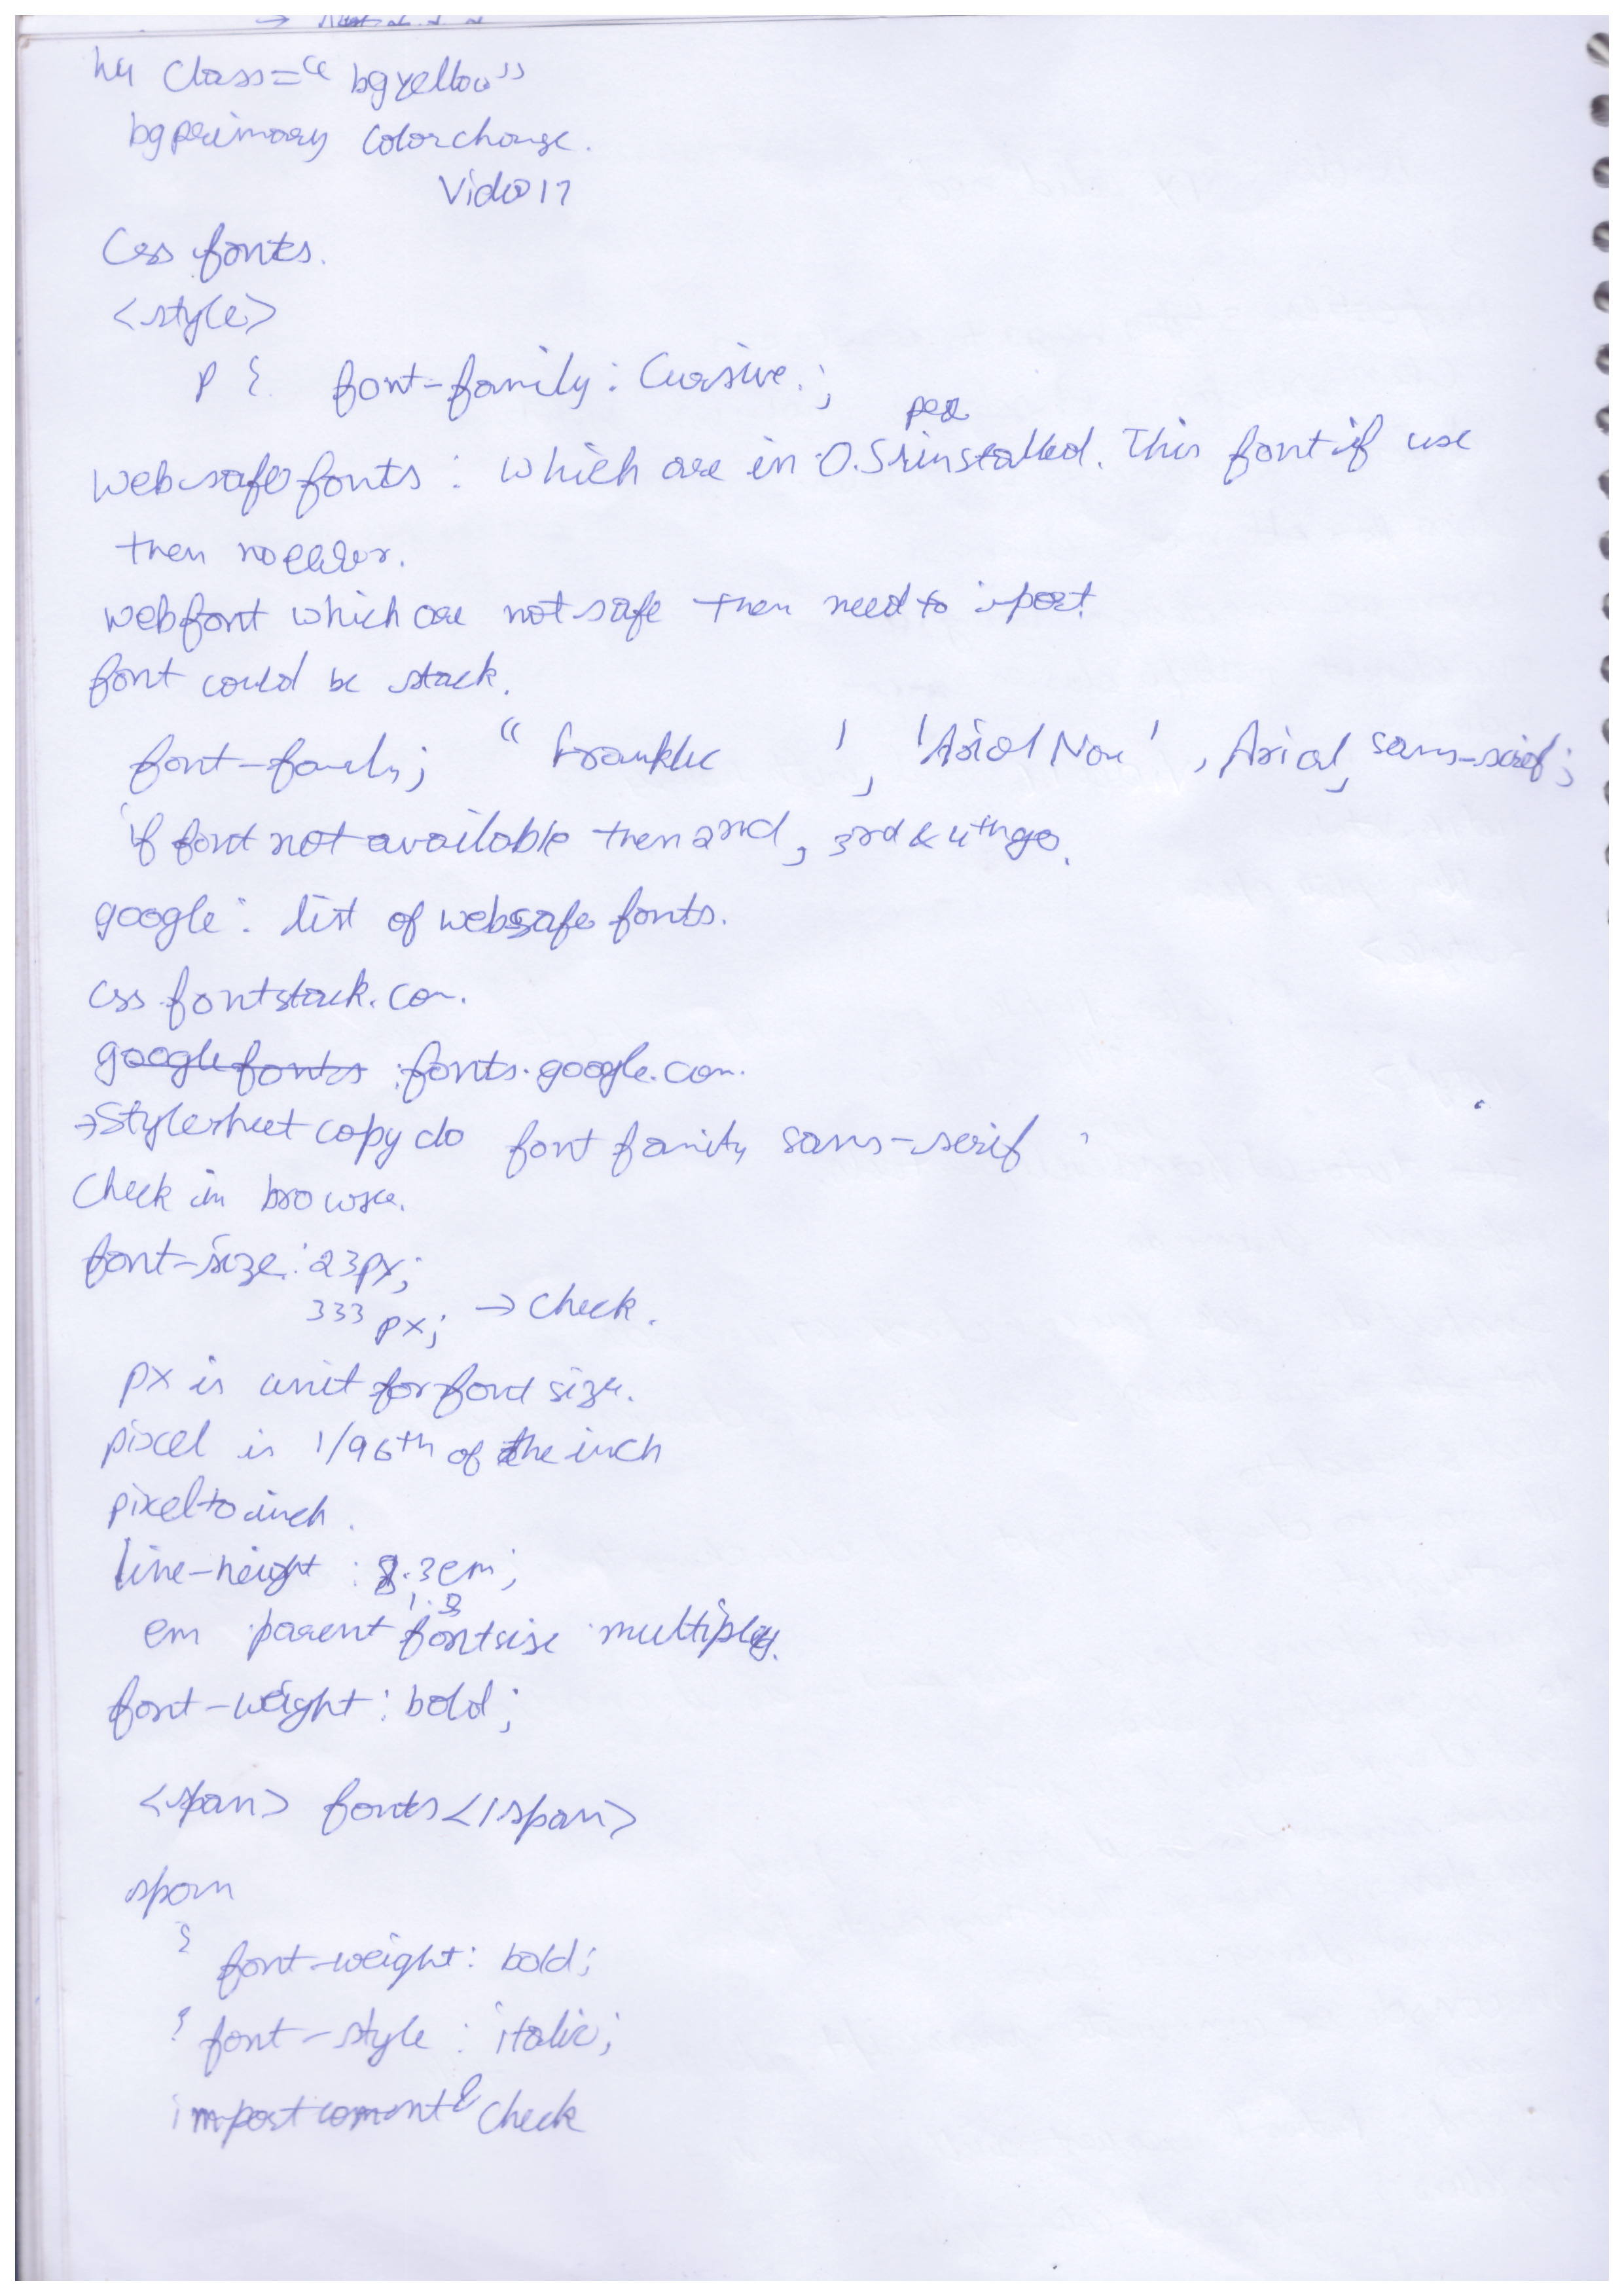 h4 class="bgyellow"
bgprimary colorchange.
Video 17
Css fonts.
<style>
p { font-family: Cursive.;
per
web safe fonts : which are in O.S installed. This font if use
then no error.
webfont which are not safe then need to import
font could be stack.
font-family; " Franklic ', 'Arial Narr', Arial, sans-serif;
if font not available then 2nd, 3rd & 4th go.
google: list of websafe fonts.
css fontstack.com.
google fonts : fonts.google.com.
→ Stylesheet copy do font family sans-serif ,
Check in browser.
font-size: 23px;
333 px; → Check.
px is unit for font size.
pixel is 1/96th of the inch
pixel to inch.
line-height : .3em;
1.3
em parent fontsize multiply.
font-weight: bold;
<span> fonts </span>
span
{ font-weight: bold;
} font-style : italic;
import comment & check